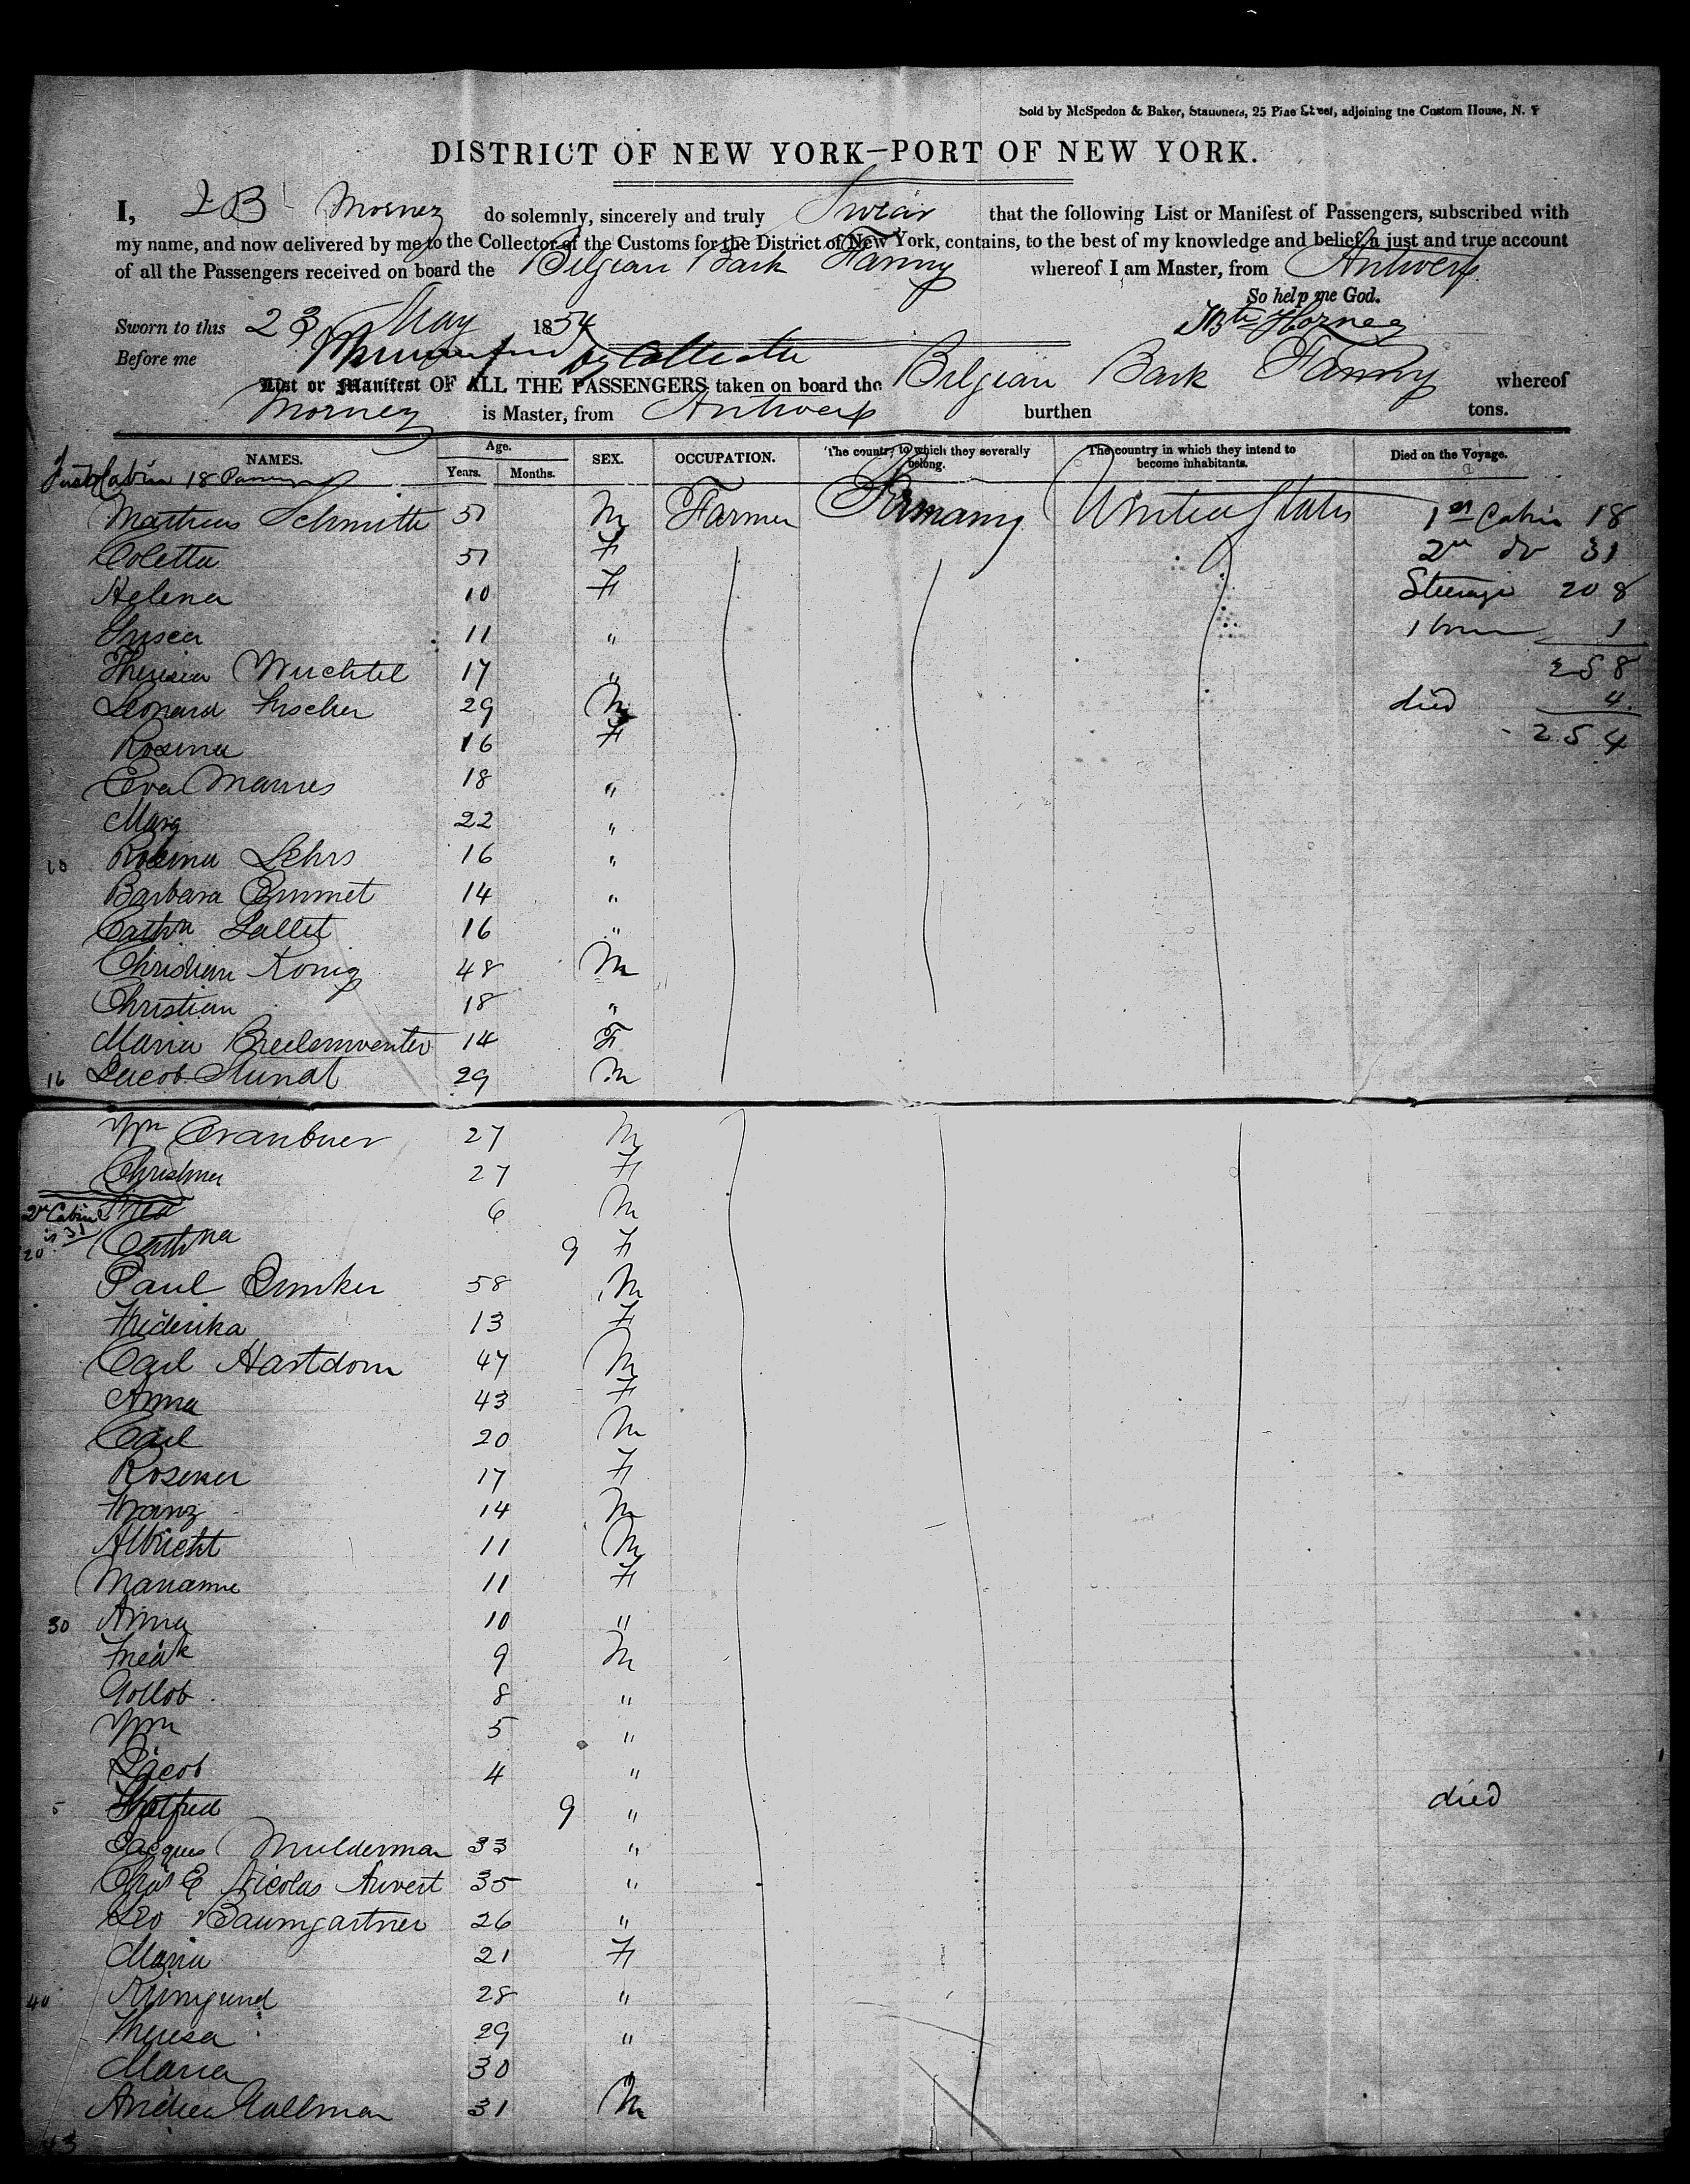 Sold by McSpedon & Baker, Stationers, 25 Pine Street, adjoining the Custom House, N. Y
DISTRICT OF NEW YORK—PORT OF NEW YORK.
I, J B Morney do solemnly, sincerely and truly Swear that the following List or Manifest of Passengers, subscribed with
my name, and now delivered by me to the Collector of the Customs for the District of New York, contains, to the best of my knowledge and belief, a just and true account
of all the Passengers received on board the Belgian Bark Fanny whereof I am Master, from Antwerp
So help me God.
Sworn to this 23 May 1854
Before me
List or Manifest OF ALL THE PASSENGERS taken on board the Belgian Bark Fanny whereof
Morney is Master, from Antwerp burthen tons.
NAMES. Age. Years. Months. SEX. OCCUPATION. The country to which they severally belong. The country in which they intend to become inhabitants. Died on the Voyage.
First Cabin 18
Mathias Schmitt 51 M Farmer Germany United States 1st Cabin 18
Coletta 51 F 2nd do 31
Helena 10 F Steerage 208
11 " 1 born 1
Theresia Wuchtel 17 " 258
Leonard Fischer 29 M died 4
Rosina 16 F 254
Eva Marius 18 "
Marg 22 "
10 Rosina Lehrs 16 "
Barbara Emmet 14 "
Cathn Sallet 16 "
Christian Konig 48 M
Christian 18 "
Maria 14 F
16 Jacob 29 M
Wm 27 M
Christina 27 F
2nd Cabin is 31
6 M
20 Cathna 9 F
Paul Dunker 58 M
Friderika 13 F
Carl Hartdorn 47 M
Anna 43 F
Carl 20 M
17 F
Franz 14 M
Albricht 11 M
Marianne 11 F
30 Anna 10 "
Fredk 9 M
Gottlob 8 "
Wm 5 "
Jacob 4 "
5 Gotfried 9 " died
Jacques Mulderman 33 "
Chas E Nicolas Auvert 35 "
Leo Baumgartner 26 "
Maria 21 F
40 Kunigund 28 "
Theresa 29 "
Maria 30 "
Andrea Gallman 31 M
43